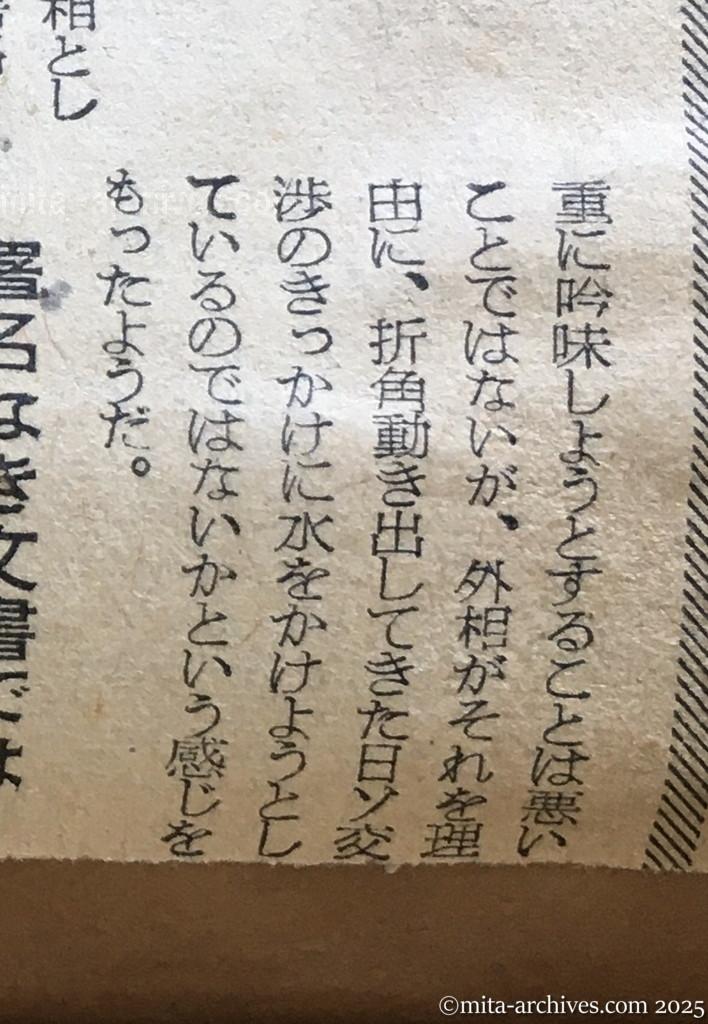 重に吟味しようとすることは悪い
ことではないが、外相がそれを理
由に、折角動き出してきた日ソ交
渉のきっかけに水をかけようとし
ているのではないかという感じを
もったようだ。
相とし
署名なき文書では
©mita-archives.com 2025